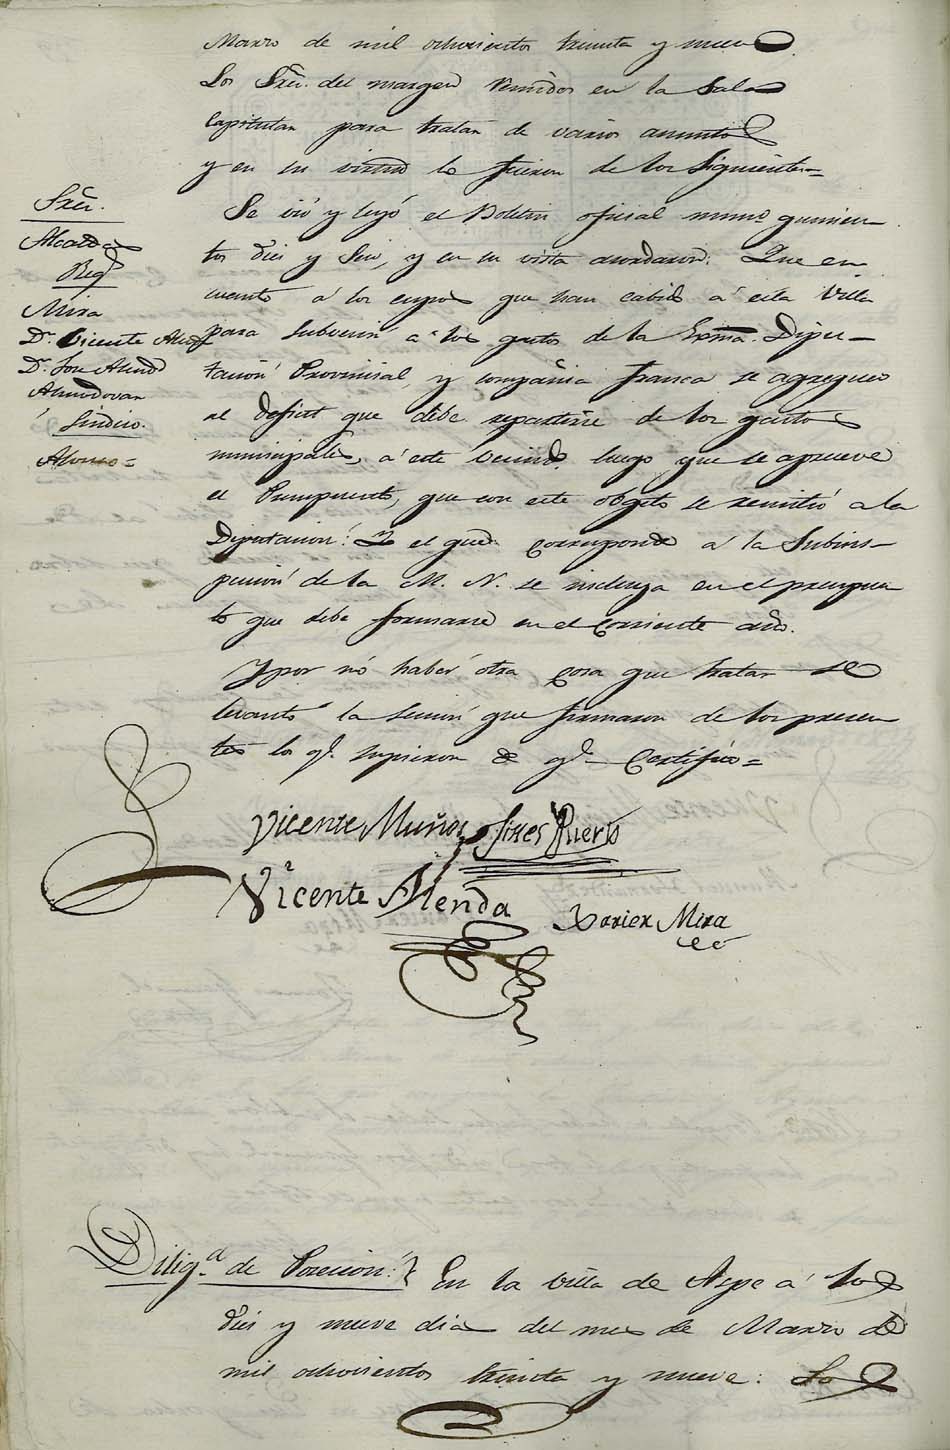 Marzo de mil ochocientos treinta y nueve
Los Sres. del margen reunidos en la Sala
Capitular para tratar de varios asuntos
y en su virtud lo hicieron de los siguientes=
Sres.
Alcalde
Regs
Mira
Dn. Vicente Alend
Dn. Jose Alend
Almodovar
Sindico.
Alonso=
Se vió y leyó el Boletin oficial numo quinien-
tos dies y seis, y en su vista acordaron: Que en
cuento á los cupos que han cabido á esta Villa
para subvenir a los gastos de la Exma. Dipu-
tacion Provinsial, y compañia franca se agregue
al deficit que debe repartirse de los gastos
municipales, á este vecindo luego que se apruebe
el Presupuesto, que con este obgeto se remitió a la
Diputacion: Y el que corresponde á la Subins-
peccion de la M. N. se incluya en el presupues
to que debe formarse en el corriente año.
Y por nó haber otra cosa que tratar se
levantó la secion que firmaron de los presen
tes los qe. supieron de qe. Certifico=
Vicente Muñoz Gines Puerto
Vicente Alenda Xavier Mira
Diliga. de Posecion. En la villa de Aspe á los
dies y nueve dias del mes de Marzo de
mil ochocientos treinta y nueve: Lo